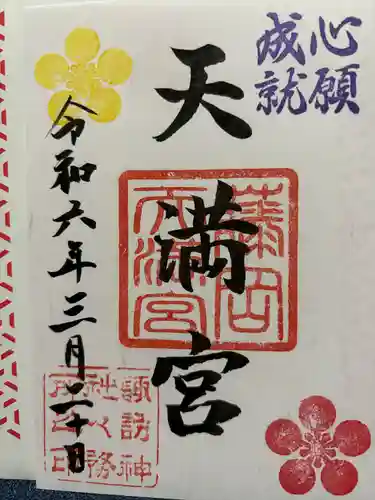 心願
成就
天満宮
令和六年三月二十日
諏訪神
社人務